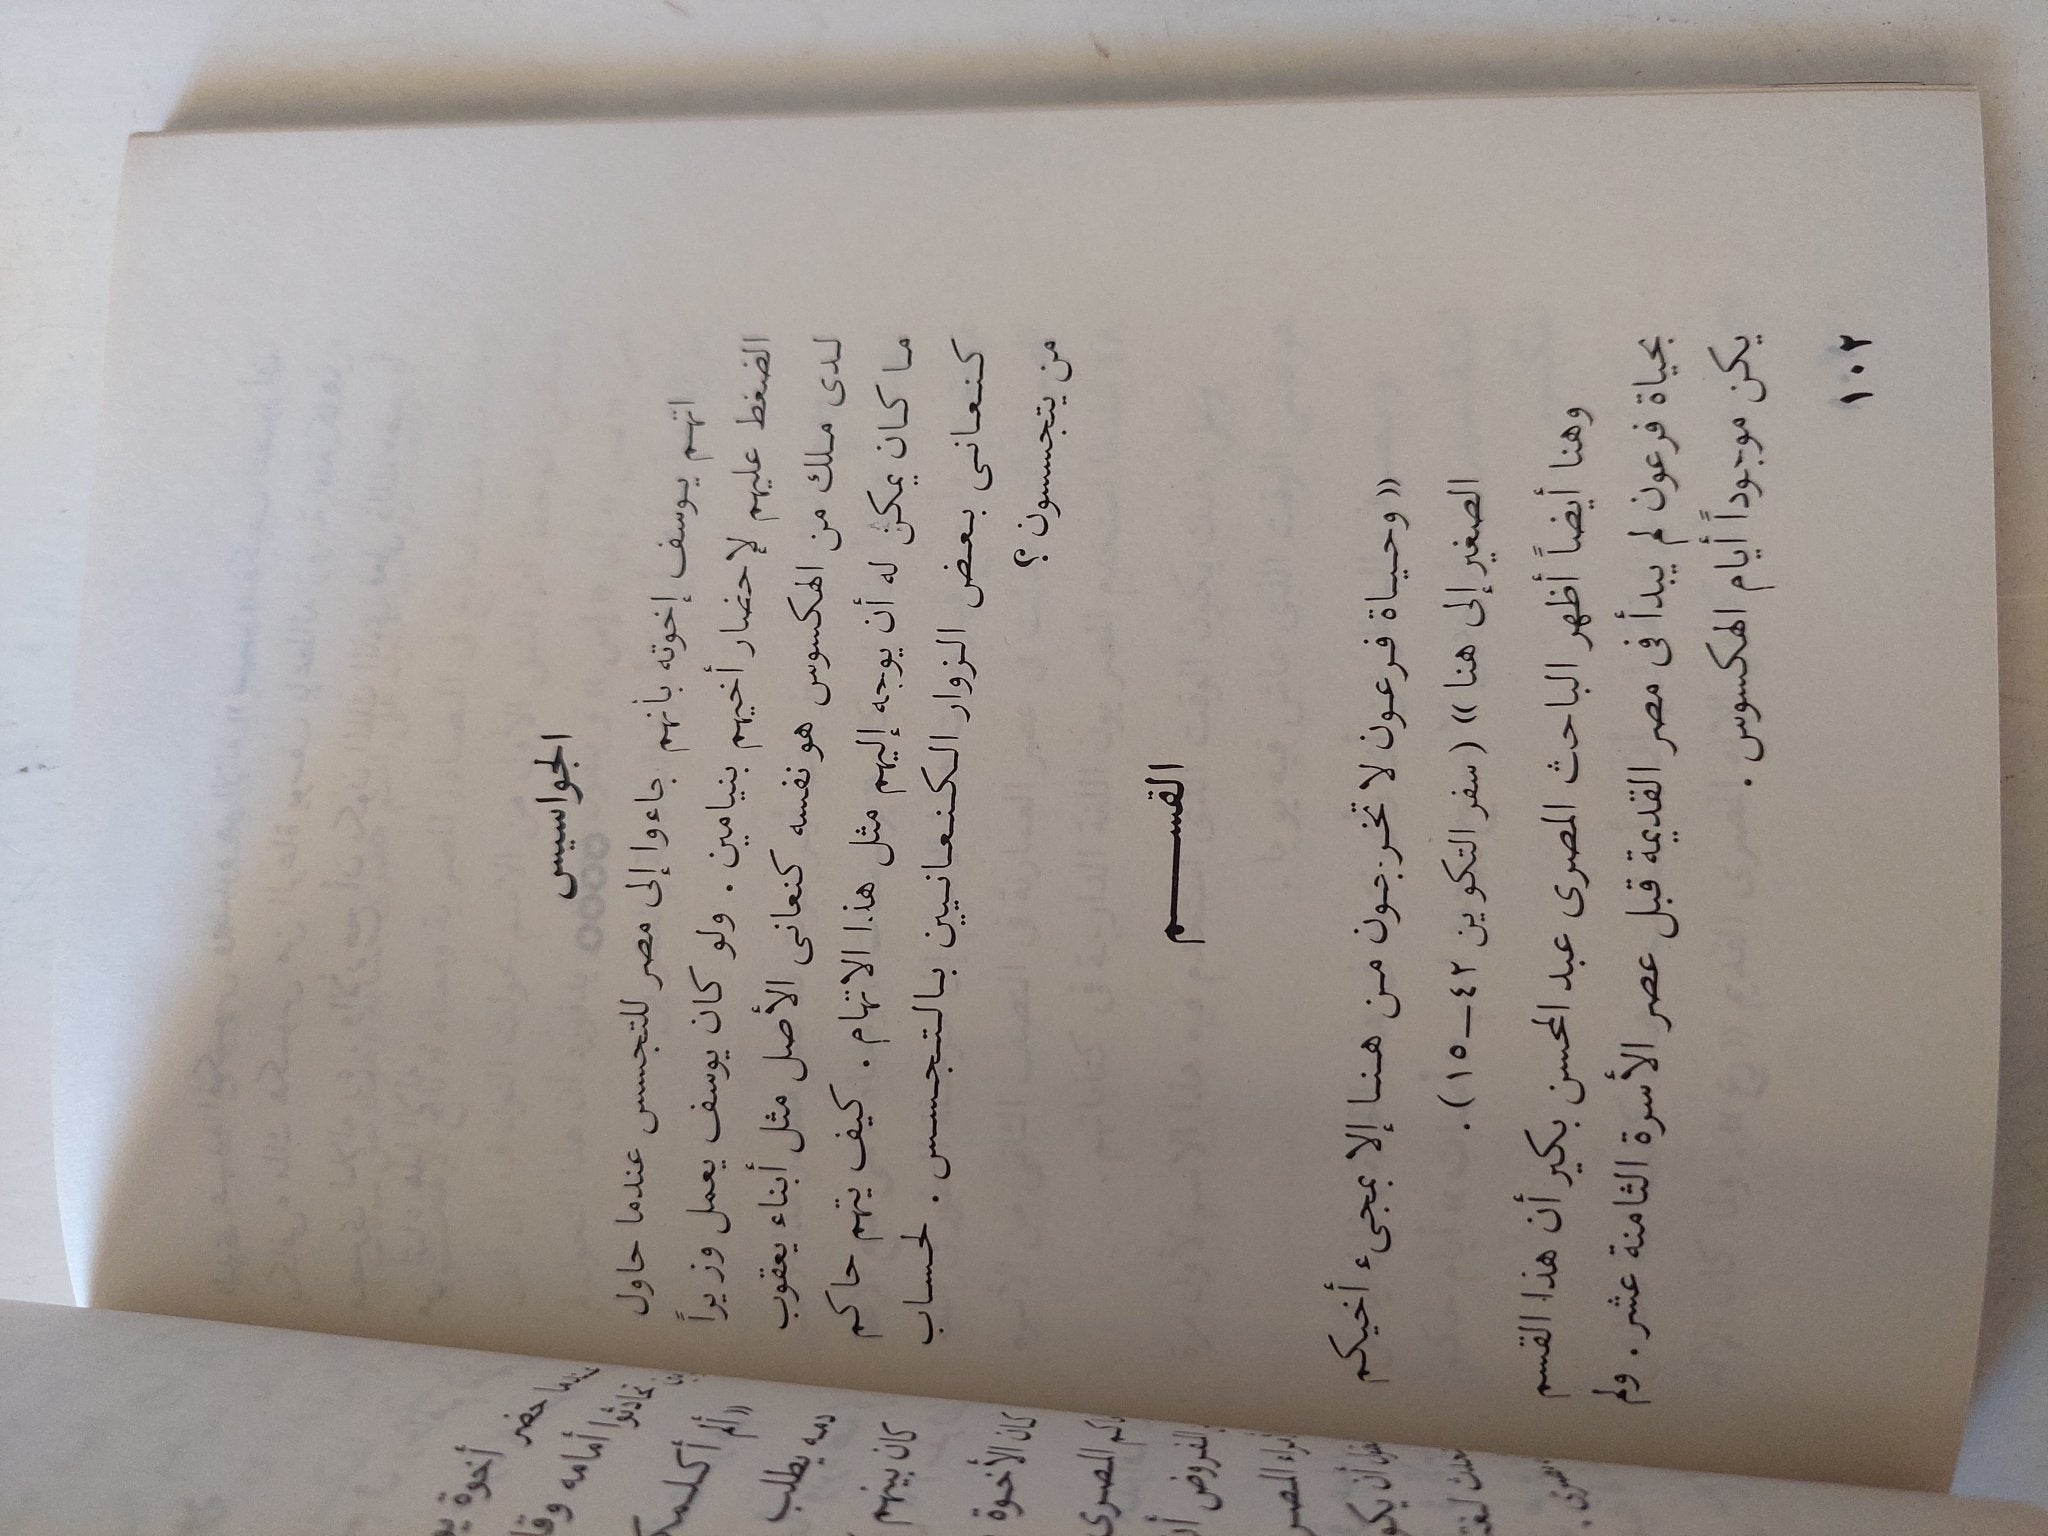 الجواسيس
اتهم يوسف إخوته بأنهم جاءوا إلى مصر للتجسس عندما حاول
الضغط عليهم لإحضار أخيهم بنيامين . ولو كان يوسف يعمل وزيراً
لدى ملك من الهكسوس هو نفسه كنعانى الأصل مثل أبناء يعقوب
ما كان يمكن له أن يوجه إليهم مثل هذا الاتهام . كيف يتهم حاكم
كنعانى بعض الزوار الكنعانيين بالتجسس . لحساب
من يتجسسون ؟
القسم
«وحياة فرعون لا تخرجون من هنا إلا بمجىء أخيكم
الصغير إلى هنا» (سفر التكوين ٤٢ــ١٥) .
وهنا أيضاً أظهر الباحث المصرى عبد المحسن بكير أن هذا القسم
بحياة فرعون لم يبدأ فى مصر القديمة قبل عصر الأسرة الثامنة عشر . ولم
يكن موجوداً أيام الهكسوس .
١٠٢
حضر أخوة
أمامه
«ألم أكلمكم
دمه يطلب
كان بينهم
كان الأخوة
المصرى